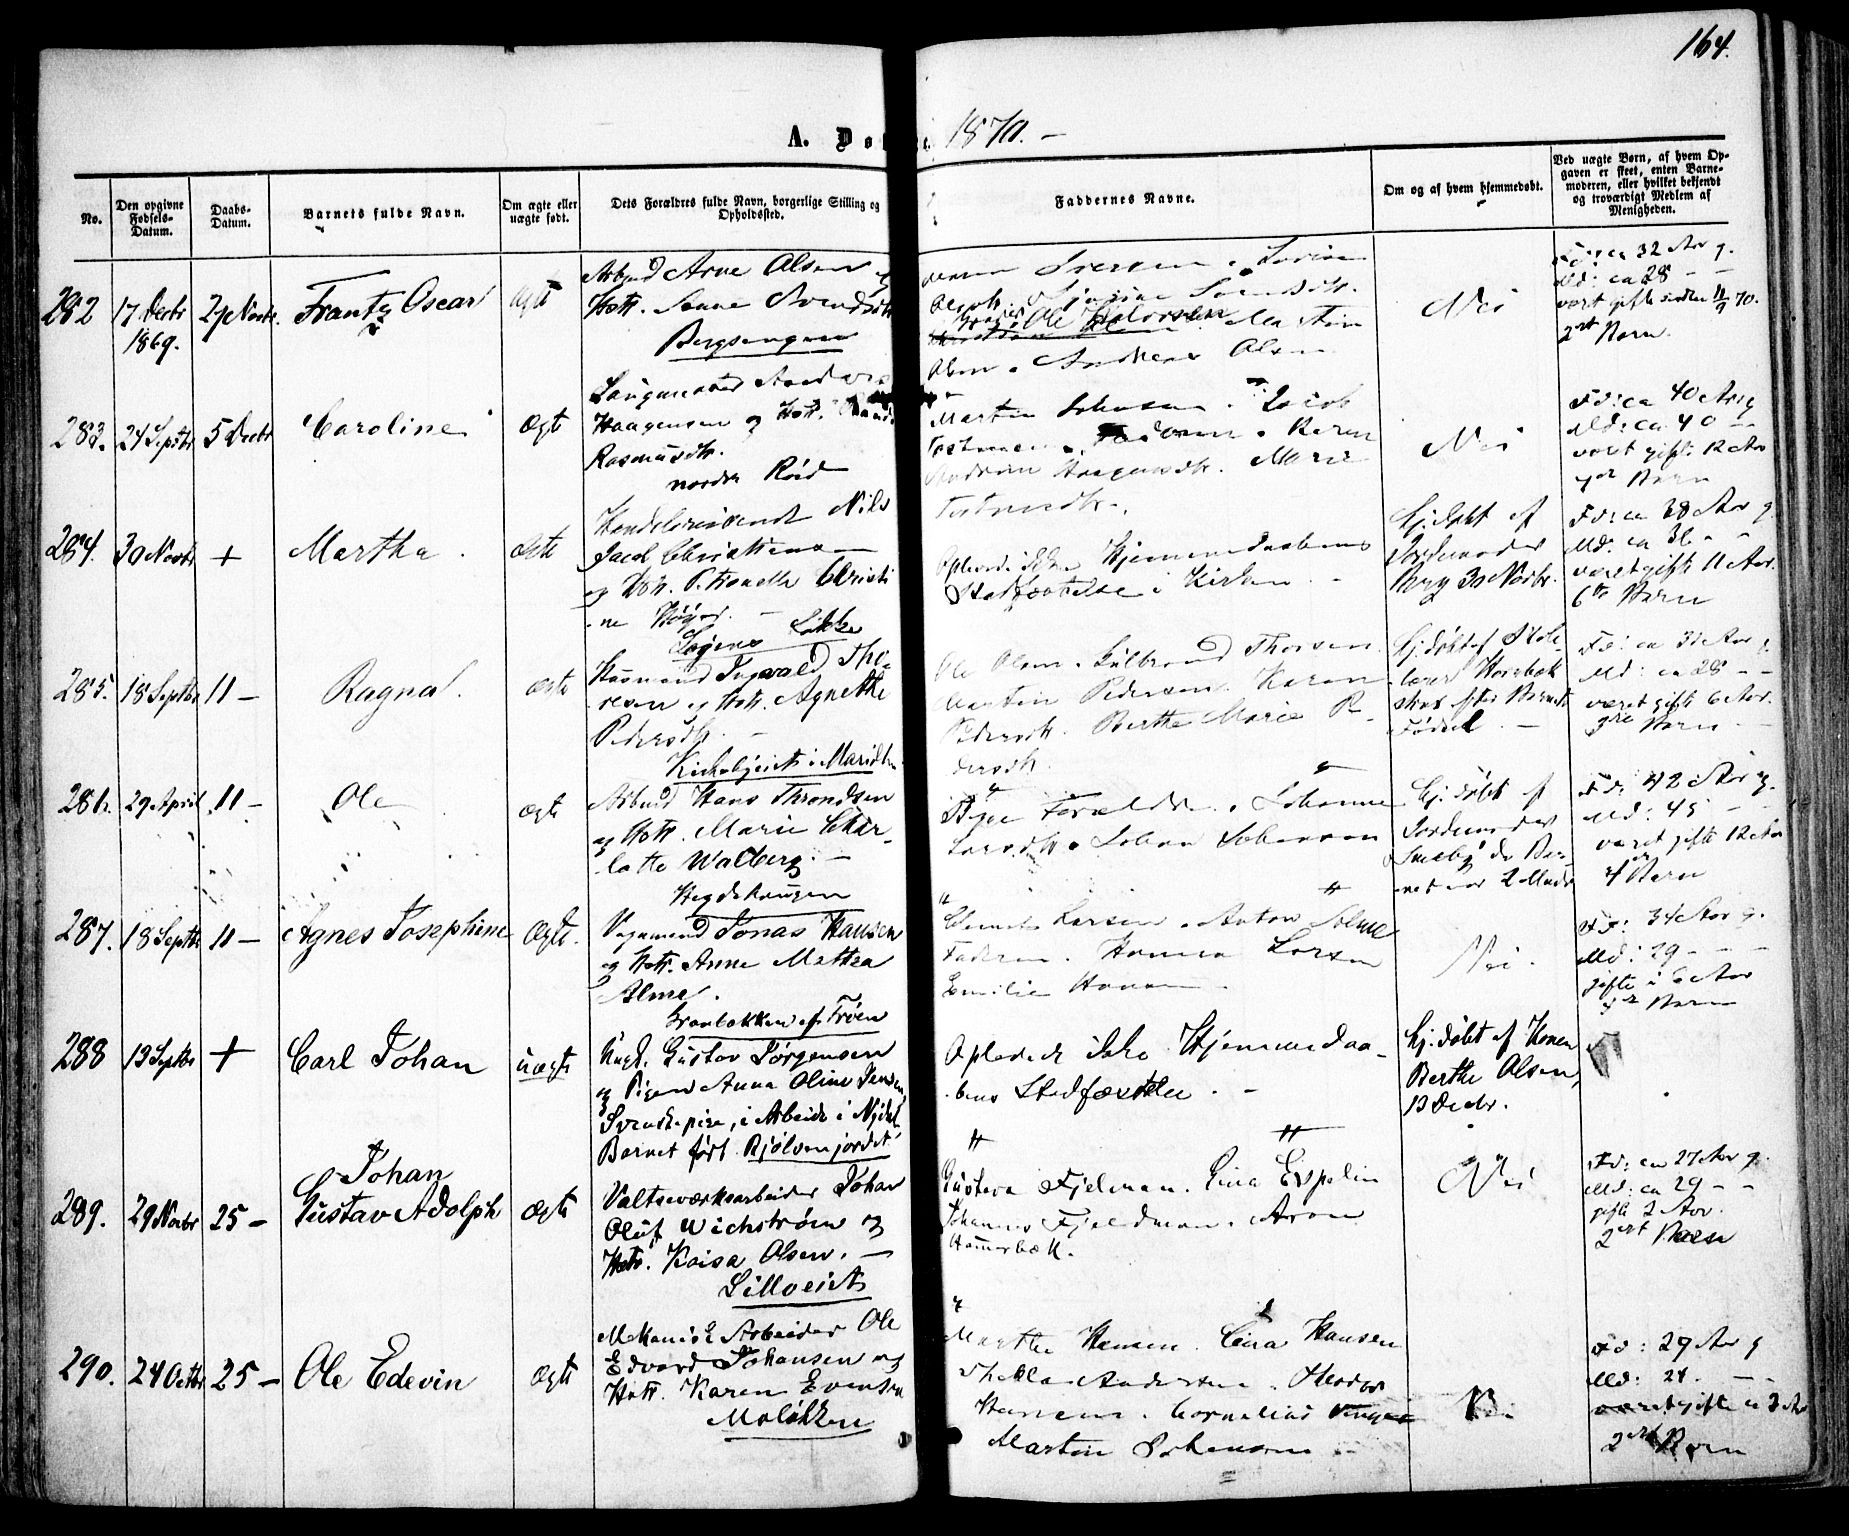 164.
A. Dø 1870. –
No.
Den opgivne Fødsels-Datum.
Daabs-Datum.
Barnets fulde Navn.
Om ægte eller uægte født.
Dets Forældres fulde Navn, borgerlige Stilling og Opholdssted.
Faddernes Navne.
Om og af hvem hjemmedøbt.
Ved uægte Børn, af hvem Opgaven er skeet, enten Barnemoderen, eller hvilket bekjendt og troværdigt Medlem af Menigheden.
282 17 Decbr 1869. 27 Novbr. Frantz Oscar Ægte
Arbmd Arne Olsen
Bergsengen
Ole Halvorsen Martin
Olsen. Andreas Olsen
Nei
Fd: ca 32 Aar g.
Md: ca 28 – –
vært gifte siden 11/9 70.
2et Barn.
283. 24 Septbr 5 Decbr Caroline Ægte
Haagensen og Hstr.
Rasmusdtr.
nordre Røid
Martin Johnsen. Jacob
Karen
Haagensdtr. Marie
Nei
Fd: ca 40 Aar g
Md: ca 40 – –
vært gift 12 Aar
Barn
284. 30 Novbr + Martha. Ægte
Nils
Jacob Christensen
og Hstr. Petronelle Christi
ne
Løkke
Oplevede ikke Hjemmedaabens
Stadfæstelse i Kirken. –
Hj.døbt af
Jordemoder
Berg 30 Novbr.
Fd: ca 38 Aar g
Md: ca 36 – –
været gifte 11 Aar.
6te Barn
285. 18 Septbr 11 – Ragna. Ægte
Huusmand Ingvald Tho-
resen og Hstr. Agnethe
Pedersdtr. –
Kirkebyeiet i Maridln
Ole Olsen. Gulbrand Thorsen.
Martin Pedersen. Karen
Pedersdtr. Berthe Marie Pe-
dersdtr.
Hj.døbt af Skole-
lærer Hornbæk
strax efter Barnets
Fødsel. –
Fd: ca 31 Aar g.
Md: ca 28 – –
været gifte 6 Aar.
3die Barn –
286. 29 April 11 – Ole Ægte
Arbmd Hans Throndsen
og Hstr. Marie Char-
lotte Walberg. –
Hegdehaugen
Begge Forældre. Johanne
Larsdtr. Johan Johansen
Hj.døbt af
Jordemoder
Smeby da Bar-
net var 2 Mdr
Fd: 42 Aar g.
Md: 45 –
været gifte 12 Aar
4de Barn
287. 18 Septbr 11 – Agnes Josephine Ægte.
Vognmand Jonas Hansen
og Hstr. Anne Mathea
Alme.
Granbakken af Frøen
Larsen. Anton Alme
Faderen. Hanna Larsen
Emilie Hansen.
Nei.
Fd: 34 Aar g.
Md: 29 – –
gifte i 6 Aar
Barn
288 13 Septbr + Carl Johan uægte
Ungk. Gustav Jørgensen
og Pigen Anna Oline Jensen,
Svenskepige, i Arbeide i Nydal
Barnet født Kjølsenjordet
Oplevede ikke Hjemmedaa-
bens Stadfæstelse. –
Hj.døbt af Konen
Berthe Olsen,
13 Decbr.
289. 29 Novbr 25 – Johan
Gustav Adolph Ægte
Valseværksarbeider Johan
Oluf Wichstrøm og
Hstr. Kaisa Olsen. –
Lilloeiet
Gustava Fjelman. Lina Espelin
Johannes Fjeldman. Aron
Hammerbæk.
Nei
Fd: ca 27 Aar g.
Md: ca 29 – –
gifte 2 Aar.
2et Barn
290. 24 Octbr 25 – Ole Edevin Ægte
Mekanisk Arbeider Ole
Edvard Johansen og
Hstr. Karen Evensen
Moløkken
Marthe Hansen. Lina Hansen
Thekla Andersen. Theodor
Hansen. Cornelius
Martin Johansen –
Nei
Fd: 29 Aar g
Md: 24. – –
været gifte i 3 Aar
2et Barn